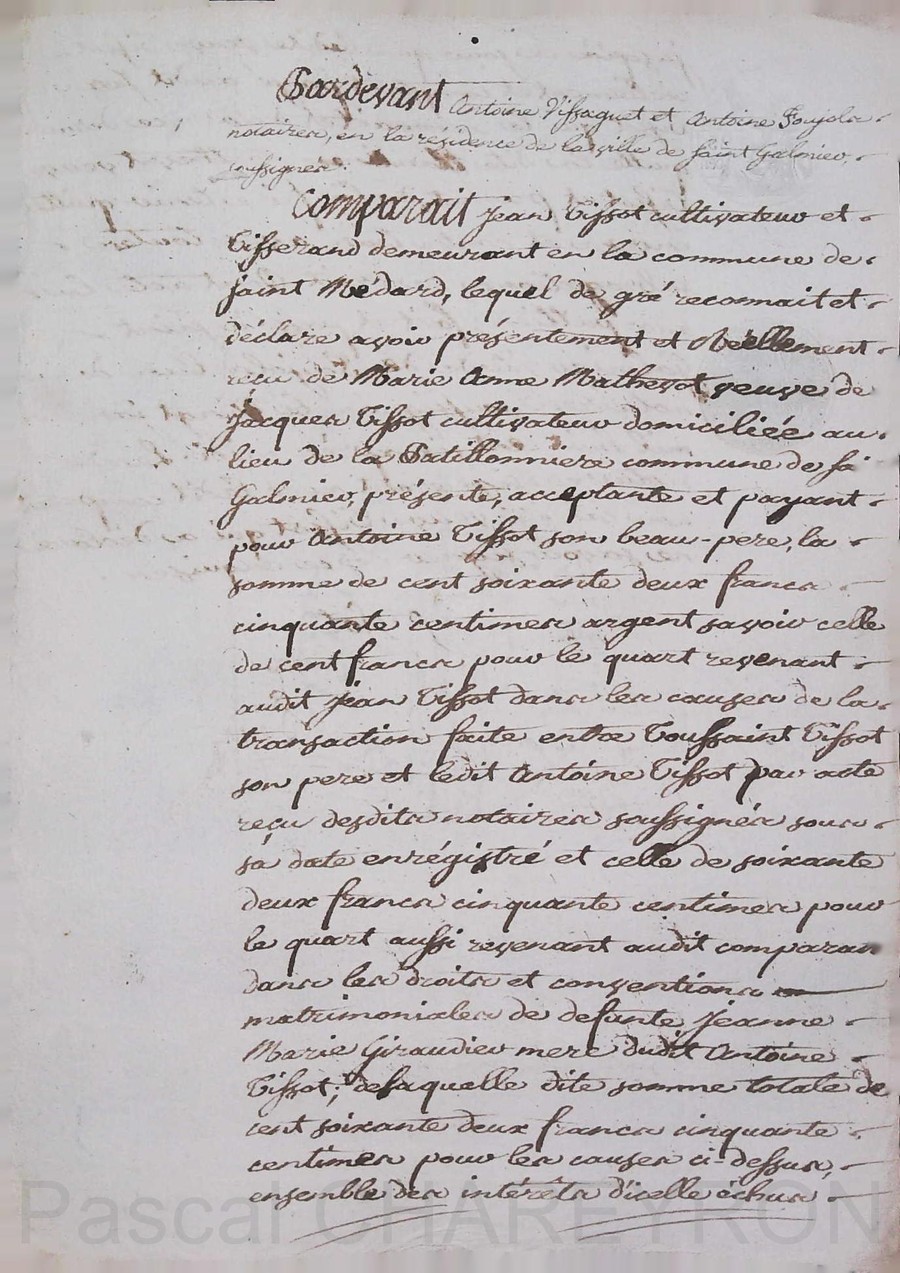 Pardevant Antoine Vissaguet et Antoine Poujola
notaires, en la résidence de la ville de saint Galmier,
soussignés.
Comparait Jean Tissot cultivateur et
Tisserand demeurant en la commune de
saint Médard, lequel de gré reconnait et
déclare avoir présentement et Réellement
reçu de Marie Anne Mathevot veuve de
Jacques Tissot cultivateur domiciliée au
lieu de la Patillonniere commune de st
Galmier, présente, acceptante et payant
pour Antoine Tissot son beau-pere, la
somme de cent soixante deux francs
cinquante centimes argent savoir celle
de cent francs pour le quart revenant
audit Jean Tissot dans les causes de la
transaction faite entre Toussaint Tissot
son pere et ledit Antoine Tissot par acte
reçu desdits notaires soussignés sous
sa date enrégistré et celle de soixante
deux francs cinquante centimes pour
le quart aussi revenant audit comparan
dans les droits et conventions
matrimoniales de defunte Jeanne
Marie Giraudier mere dudit Antoine
Tissot; de laquelle dite somme totale de
cent soixante deux francs cinquante
centimes pour les causes ci-dessus,
ensemble des intérêts d'icelle échus
Pascal CHAREYRON